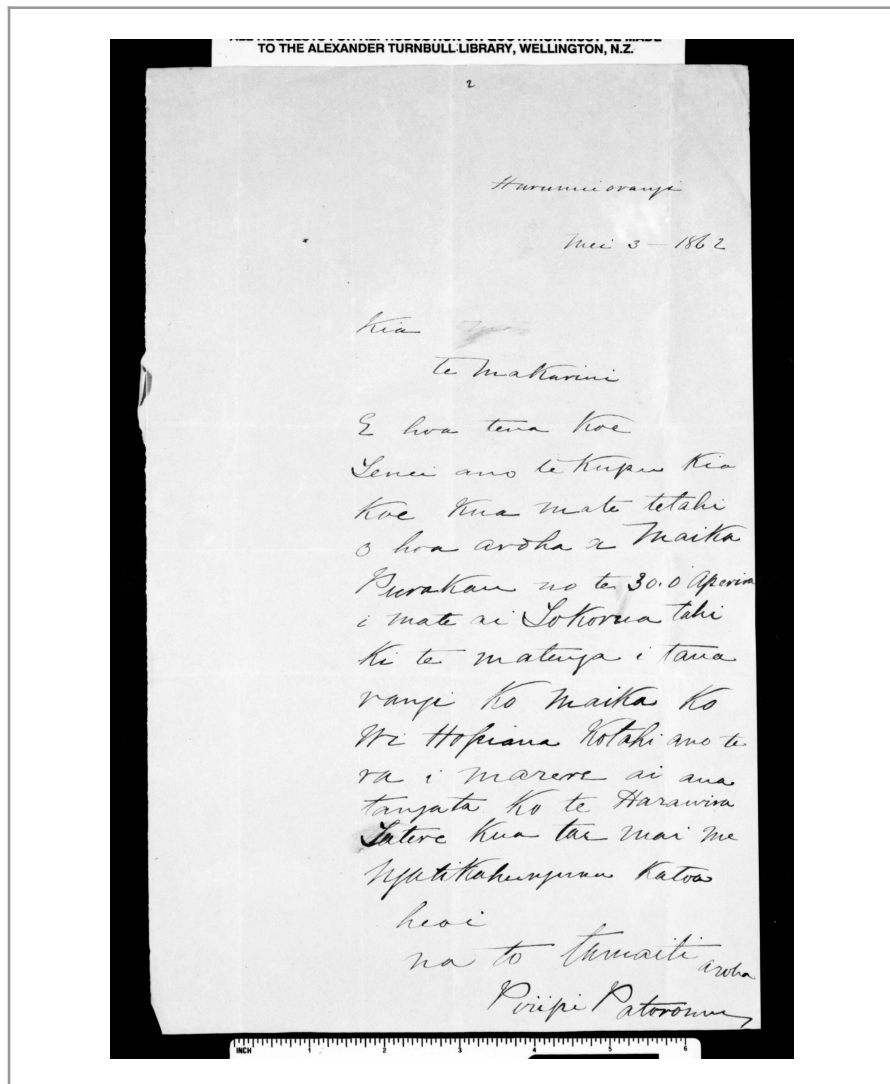 ALL REQUESTS FOR REPRODUCTION OR QUOTATION MUST BE MADE
TO THE ALEXANDER TURNBULL LIBRARY, WELLINGTON, N.Z.
2
Hurunuiorangi
Mei 3 - 1862
Kia
te Makarini
E hoa tena Koe
Tenei ano te Kupu Kia
Koe Kua mate tetahi
o hoa aroha a Maika
Purakau no te 30.0 Aperira
i mate ai Tokorua tahi
Ki te matenga i taua
rangi Ko Maika Ko
Wi Hopiana Kotahi ano te
ra i marere ai aua
tangata Ko te Harawira
Tatere Kua tae mai me
Ngatikahungunu Katoa
heoi
na to tamaiti aroha
Piripi Patoromu
INCH 1 2 3 4 5 6